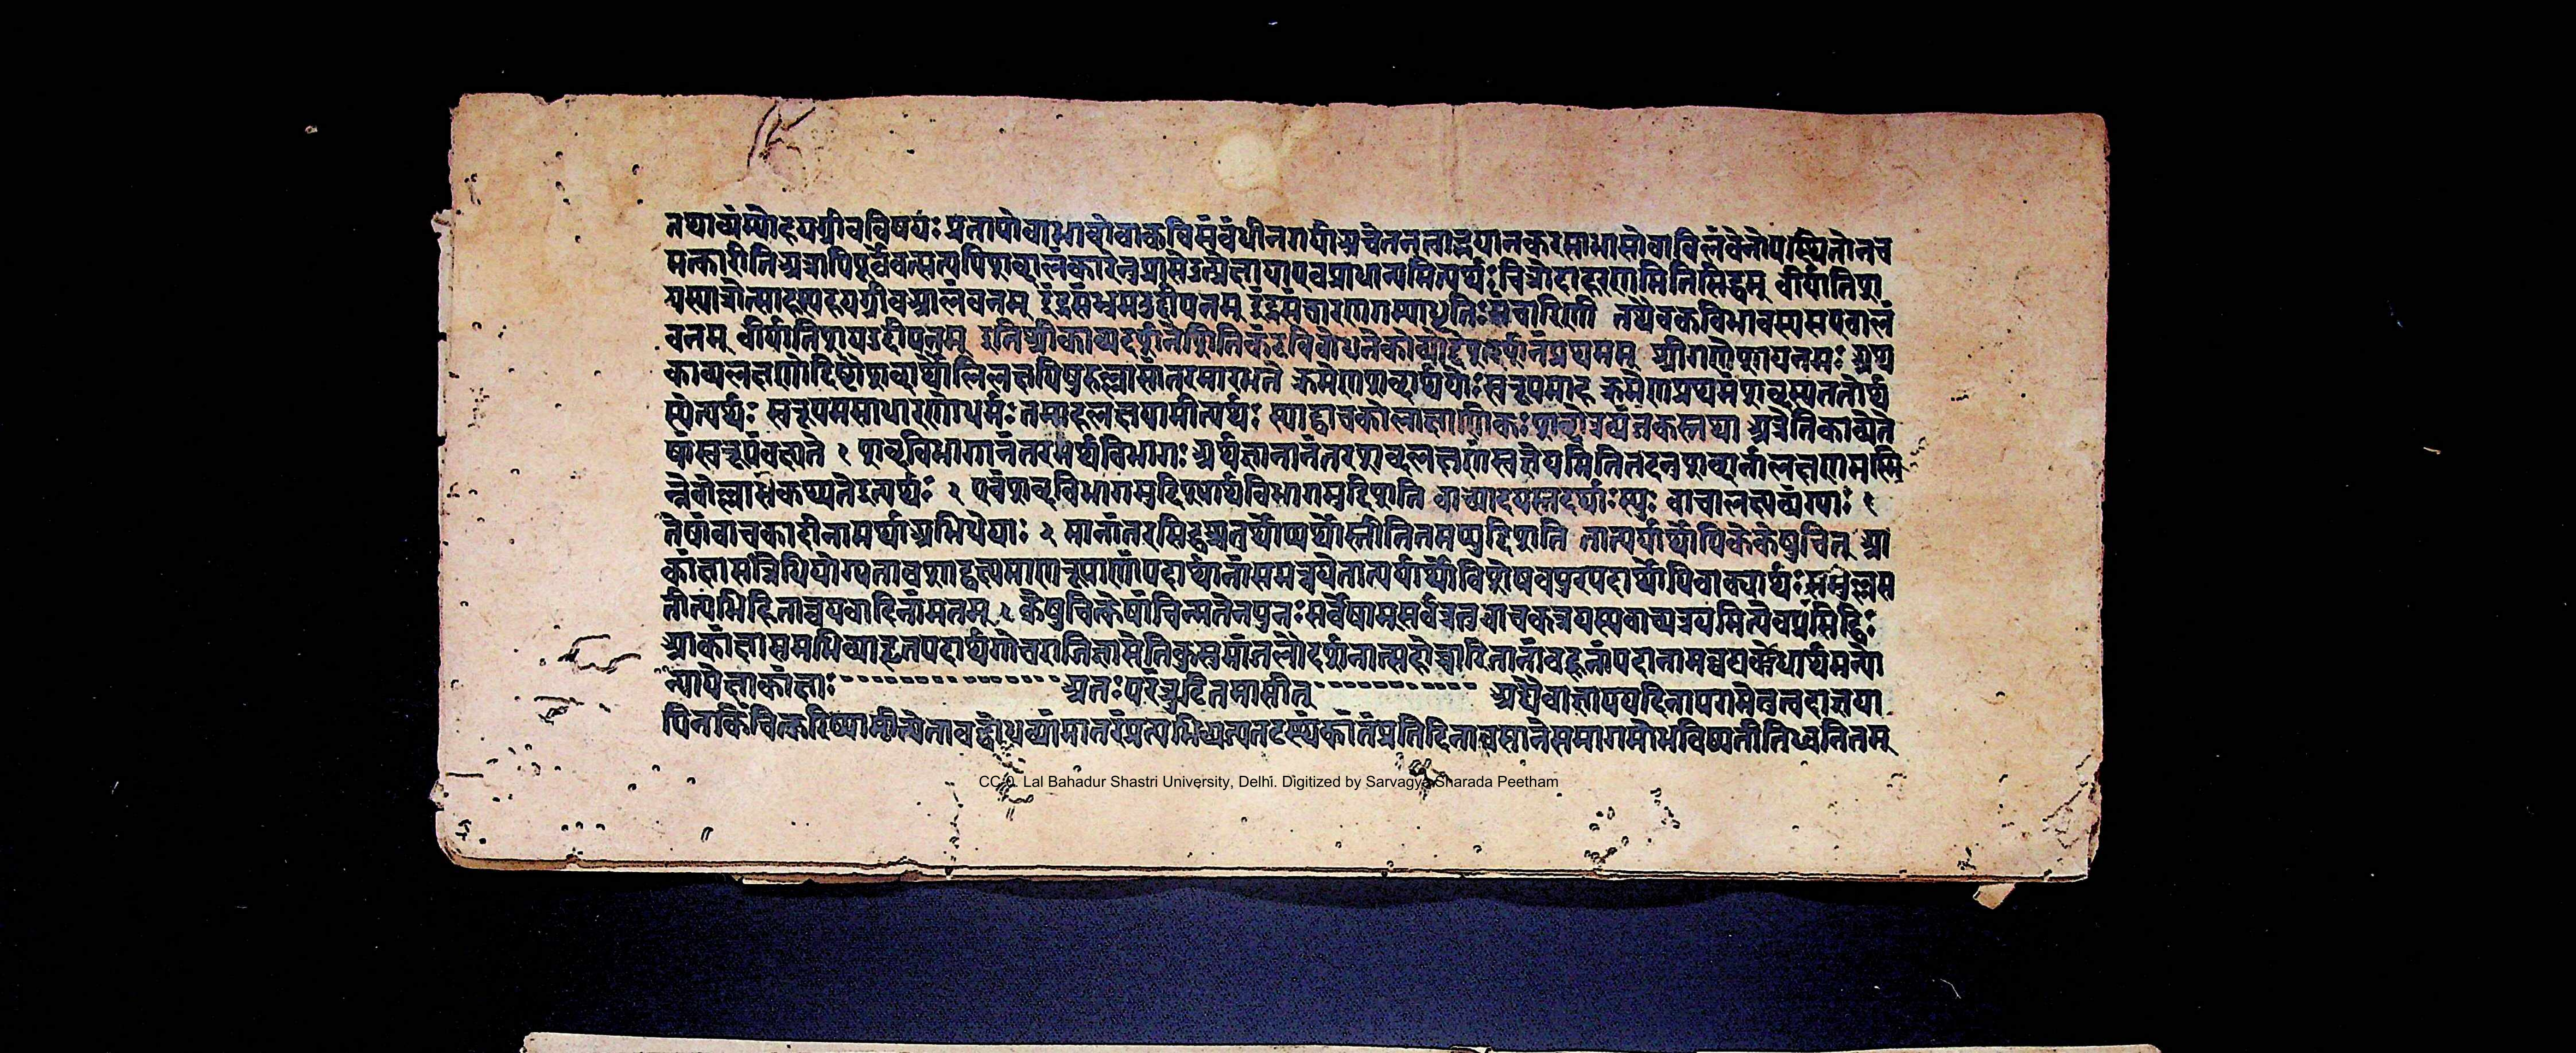 तथाव्यंग्योहयग्रीवविषयः प्रतापोवाभावोवाकविसंबंधीनगर्याअचेतनत्वाद्भयानकरसाभासोवाविलंबेनोपस्थितोनच
मत्कारीतिअत्रापिपूर्ववत्सत्यपिशब्दालंकारेनुप्रासेउत्प्रेक्षायाएवप्राधान्यमित्यर्थः चित्रोदाहरणमितिसिद्धम् वीर्यातिशा
यस्पात्रोत्साहस्यहयग्रीवआलंबनम् इंद्रसंभ्रमउद्दीपनम् इंद्रसंचारणगम्याधृतिःसंचारिणी तथैवकविभावस्यसएवालं
बनम् वीर्यातिशयउद्दीपनम् इतिश्रीकाव्यदर्शने प्रथमम् श्रीगणेशायनमः अथ
काव्यलक्षणोद्दिष्टौशब्दार्थौलिलक्षयिषुरुल्लासांतरमारभते क्रमेणशब्दार्थयोःस्वरूपमाह क्रमेणप्रथमंशब्दस्यततोर्थ
स्येत्यर्थः स्वरूपमसाधारणोधर्मः तमाहलक्षयामीत्यर्थः स्याद्वाचकोलाक्षणिकःशब्दोत्रव्यंजकस्तथा अत्रेतिकाव्येते
षांस्वरूपंवक्ष्यते १ शब्दविभागानंतरमर्थविभागः अर्थज्ञानानंतरशब्दलक्षणंस्वज्ञेयमितितदनशब्दानांलक्षणमस्मि
न्नेवोल्लासेकथ्यतेइत्यर्थः २ एवंशब्दविभागमुद्दिश्यार्थविभागमुद्दिशति वाच्यादयस्तदर्थाःस्युः वाच्यलक्ष्यव्यंग्याः १
तेषांवाचकादीनामर्थाअभिधेयाः २ मानांतरसिद्धश्चतर्थोप्यर्थोस्तीतितमप्युद्दिशति तात्पर्यार्थोपिकेकेषुचित् आ
कांक्षासंन्निधियोग्यतावशाद्वक्ष्यमाणरूपाणांपदार्थानांसमन्वयेतात्पर्यार्थोविशेषवपुरपदार्थोपिवाक्यार्थःसमुल्लस
तीत्यभिहितान्वयवादिनांमतम् १ केषुचित्केषांचिन्मतेनपुनःसर्वेषामसर्वत्रतुवाचकत्रयस्यवाच्यत्रयमित्येवप्रसिद्धिः
आकांक्षासमभिव्याहृतपदार्थगोचराजिज्ञासेतिकुसुमांजलौ बहूनांपदानामन्वयबोधार्थमन्यो
न्यापेक्षाकांक्षाः अतःपरंत्रुटितमासीत् अद्यैवाज्ञापयदिनापगमेनुत्वदाज्ञया
पिनकिंचित्करिष्यामीत्येतावद्बोधव्यांमातरंप्रत्यभिव्यज्यतटस्थंकांतंप्रतिदिनावसानेसमागमोभविष्यतीतिध्वनितम्
CC-0. Lal Bahadur Shastri University, Delhi. Digitized by Sarvagya Sharada Peetham